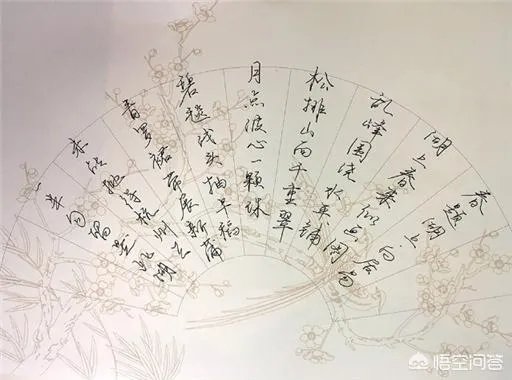 春题湖上
白居易
湖上春来似画图
乱峰围绕水平铺
松排山面千重翠
月点波心一颗珠
碧毯线头抽早稻
青罗裙带展新蒲
未能抛得杭州去
一半勾留是此湖
悟空问答